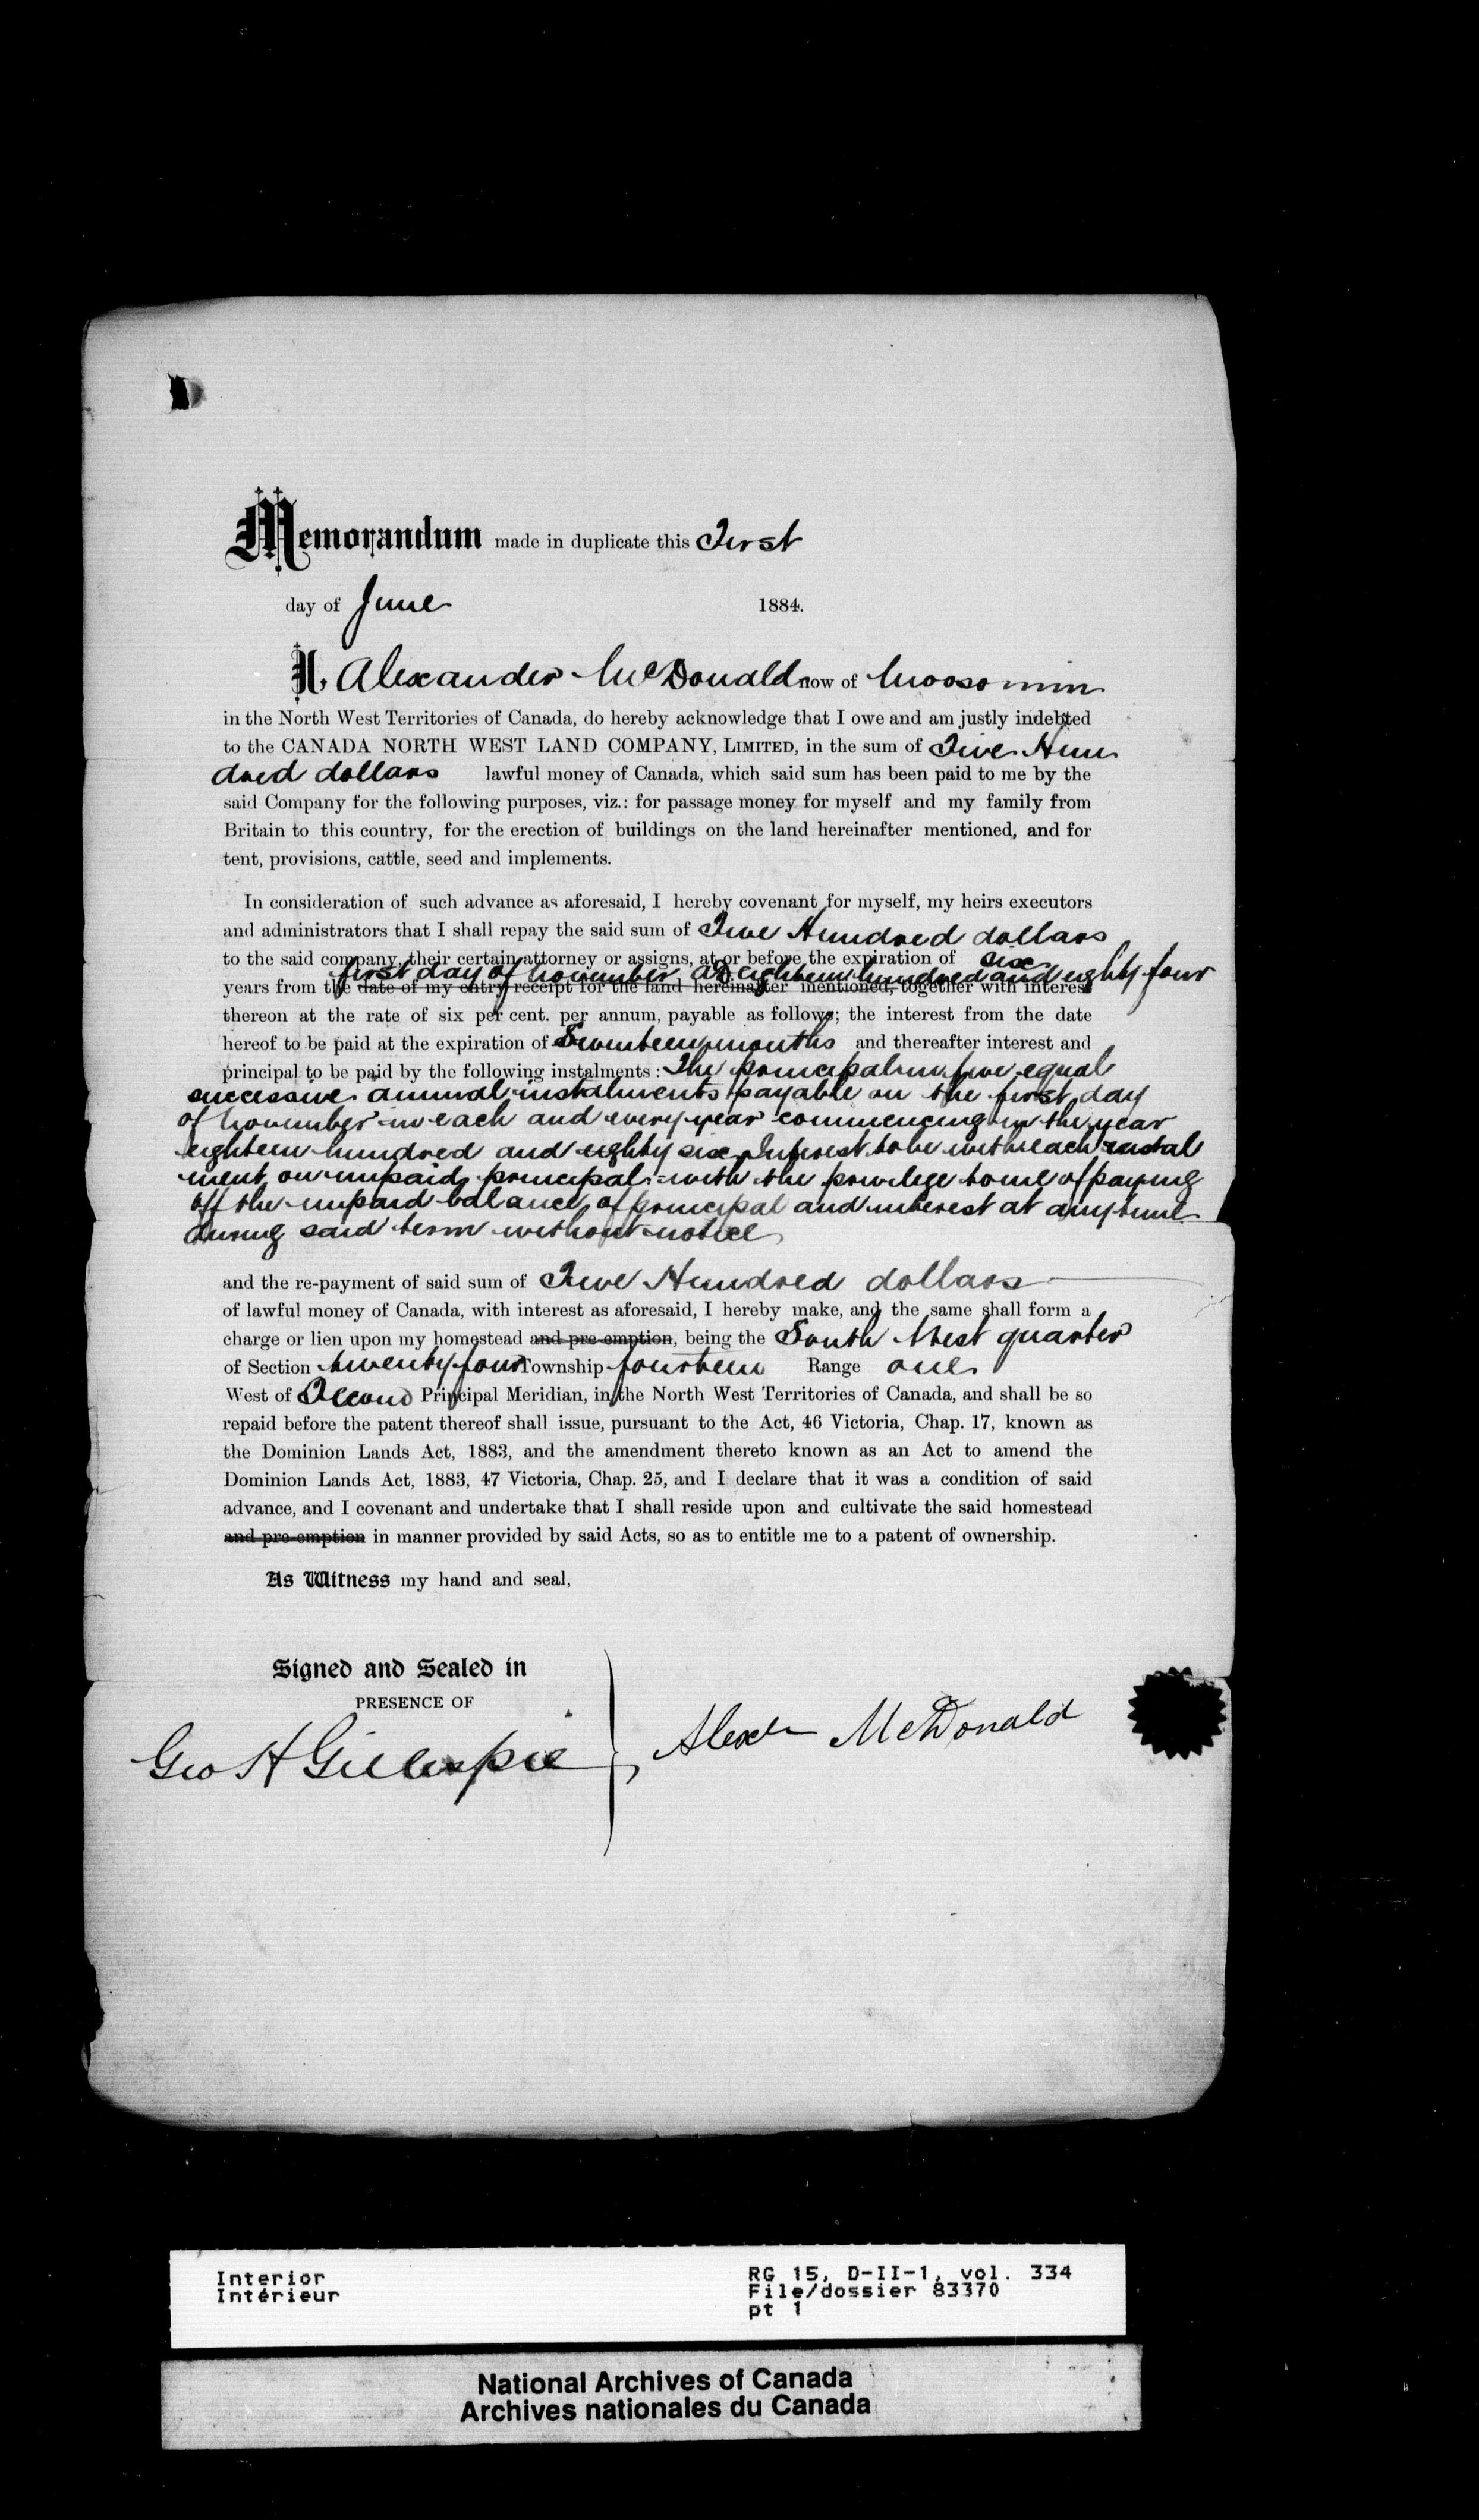 Memorandum made in duplicate this First
day of June 1884.
I, Alexander McDonald now of Moosomin
in the North West Territories of Canada, do hereby acknowledge that I owe and am justly indebted
to the CANADA NORTH WEST LAND COMPANY, LIMITED, in the sum of Five Hun
dred dollars lawful money of Canada, which said sum has been paid to me by the
said Company for the following purposes, viz.: for passage money for myself and my family from
Britain to this country, for the erection of buildings on the land hereinafter mentioned, and for
tent, provisions, cattle, seed and implements.
In consideration of such advance as aforesaid, I hereby covenant for myself, my heirs executors
and administrators that I shall repay the said sum of Five Hundred dollars
to the said company, their certain attorney or assigns, at or before the expiration of six
first day of November AD eighteen hundred and eighty four
years from the date of my entry receipt for the land hereinafter mentioned, together with interest
thereon at the rate of six per cent. per annum, payable as follows; the interest from the date
hereof to be paid at the expiration of Seventeen months and thereafter interest and
principal to be paid by the following instalments: The principal in five equal
successive annual instalments payable on the first day
of November in each and every year commencing in the year
eighteen hundred and eighty six Interest to be with each instal
ment on unpaid principal with the privilege to me of paying
off the unpaid balance of principal and interest at any time
during said term without notice
and the re-payment of said sum of Five Hundred dollars
of lawful money of Canada, with interest as aforesaid, I hereby make, and the same shall form a
charge or lien upon my homestead and pre-emption, being the South West quarter
of Section twenty four Township fourteen Range one
West of Second Principal Meridian, in the North West Territories of Canada, and shall be so
repaid before the patent thereof shall issue, pursuant to the Act, 46 Victoria, Chap. 17, known as
the Dominion Lands Act, 1883, and the amendment thereto known as an Act to amend the
Dominion Lands Act, 1883, 47 Victoria, Chap. 25, and I declare that it was a condition of said
advance, and I covenant and undertake that I shall reside upon and cultivate the said homestead
and pre-emption in manner provided by said Acts, so as to entitle me to a patent of ownership.
As Witness my hand and seal,
Signed and Sealed in
PRESENCE OF
Geo H Gillespie
Alexr McDonald
Interior
Intérieur
RG 15, D-II-1, vol. 334
File/dossier 83370
pt 1
National Archives of Canada
Archives nationales du Canada